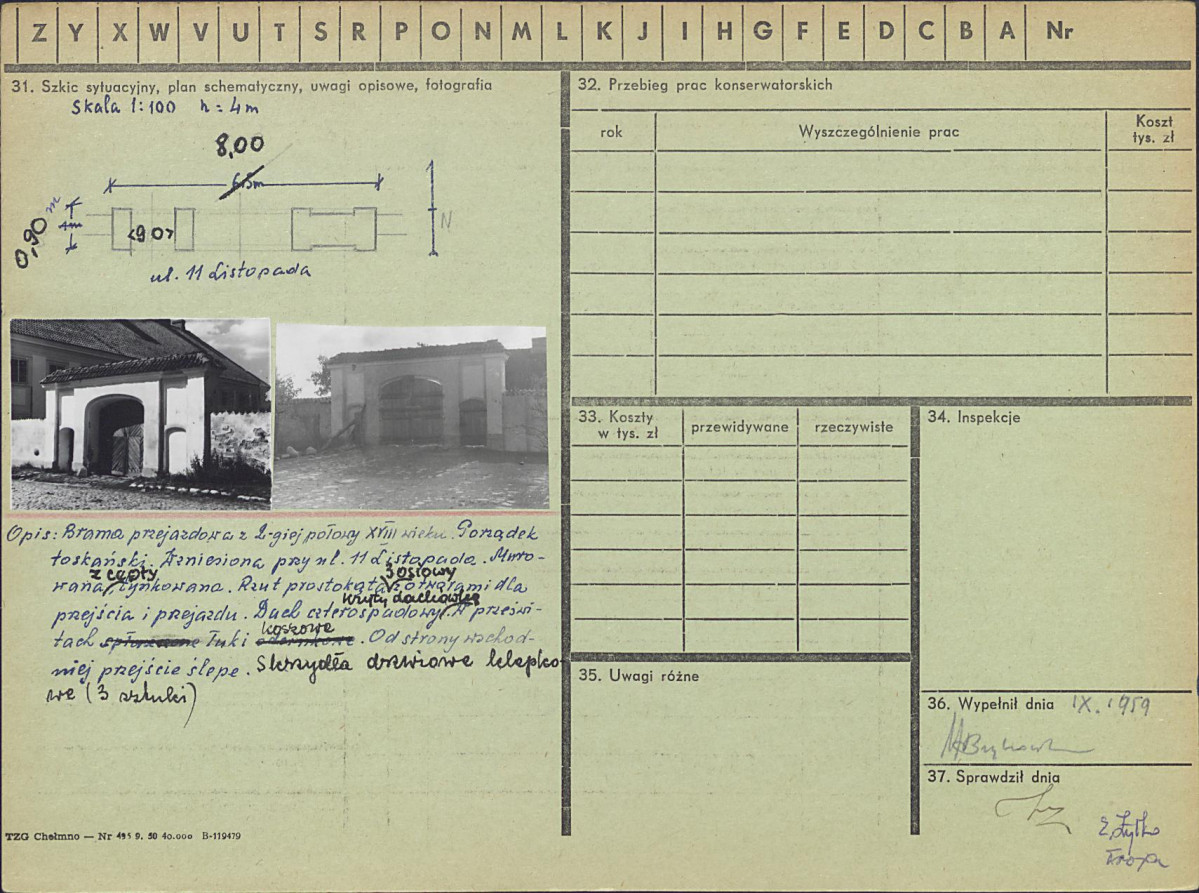 Z Y X W V U T S R P O N M L K J I H G F E D C B A Nr
31. Szkic sytuacyjny, plan schematyczny, uwagi opisowe, fotografia
Skala 1:100 h = 4m
8,00
6.5m
0,90 m
1m
90
N
ul. 11 Listopada
Opis: Brama przejazdowa z 2-giej połowy XVIII wieku. Porządek
toskański. Wzniesiona przy ul. 11 Listopada. Muro-
z cegły 3 osiowy
wana, tynkowana. Rzut prostokąta z otworami dla
kryty dachówką
przejścia i przejazdu. Dach czterospadowy. W prześwi-
koszowe
tach spłaszczone łuki. Od strony wschod-
niej przejście ślepe. Skrzydła drzwiowe
we (3 sztuki)
TZG Chełmno — Nr 495 9. 50 40.000 B-119479
32. Przebieg prac konserwatorskich
rok Wyszczególnienie prac Koszt
tys. zł
33. Koszty
w tys. zł przewidywane rzeczywiste
34. Inspekcje
35. Uwagi różne
36. Wypełnił dnia IX. 1959
37. Sprawdził dnia